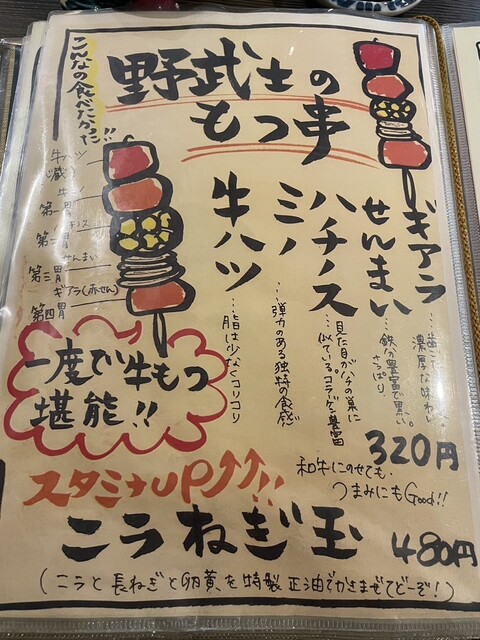 こんなの食べたかった!!
野武士の
もつ串
牛ハツ
(心臓)
牛ミノ
第一胃
ハチノス
第二胃
せんまい
第三胃
ギアラ(赤せん)
第四胃
ギアラ…歯ごたえ 濃厚な味わい
せんまい…鉄分豊富で黒い。さっぱり。
ハチノス…見た目がハチの巣に似ている。コラーゲン豊富
ミノ…弾力のある独特の食感
牛ハツ…脂は少なくコリコリ
320円
一度で牛もつ
堪能!!
和牛にのせても、
つまみにもGood!!
スタミナUP↑↑!!
ニラねぎ玉
480円
(ニラと長ねぎと卵黄を特製正油でかきまぜてどーぞ!)